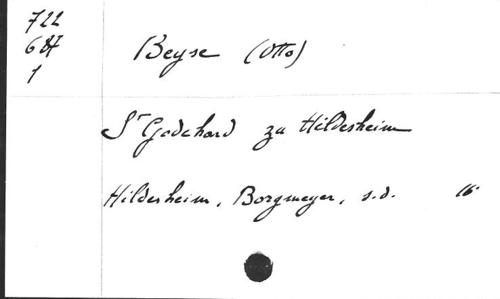 722
687
1
Beyse (Otto)
St Godehard zu Hildesheim
Hildesheim, Borgmeyer, s.d. 16°